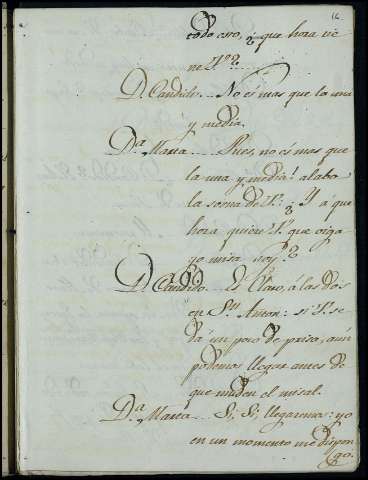 14
todo eso, ¿que hora vie
ne V.?
D. Candido.... No es mas que la una
y media.
Da. Maria..... Pues, no es mas que
la una y media! alabo
la sorna de V.! ¿Y á que
hora quiere V. que oiga
yo misa hoy?
D. Candido.... Es Claro, á las dos
en Sn. Anton: si V. se
dá un poco de prisa, aun
podemos llegar antes de
que muden el misal.
Da. Maria..... Si, Si, llegaremos: yo
en un momento me dispon
go.